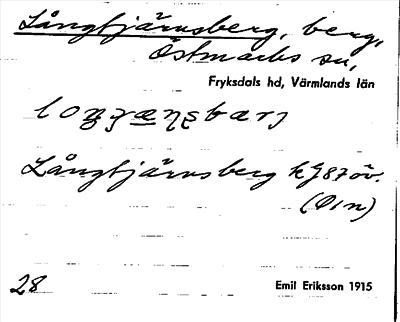 Långtjärnsberg, berg,
Östmarks sn,
Fryksdals hd, Värmlands län
Långtjärnsberg kJ87öv.
(Ö1n)
28
Emil Eriksson 1915